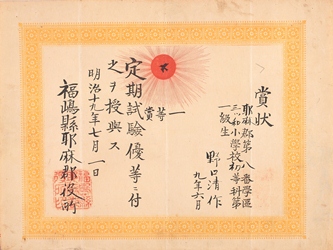 賞状
耶麻郡第八番學區
三ツ和小學校初等科第
一級生
野口清作
九年六月
一等賞
定期試験優等ニ付
之ヲ授與ス
明治十九年七月一日
福嶋縣耶麻郡役所